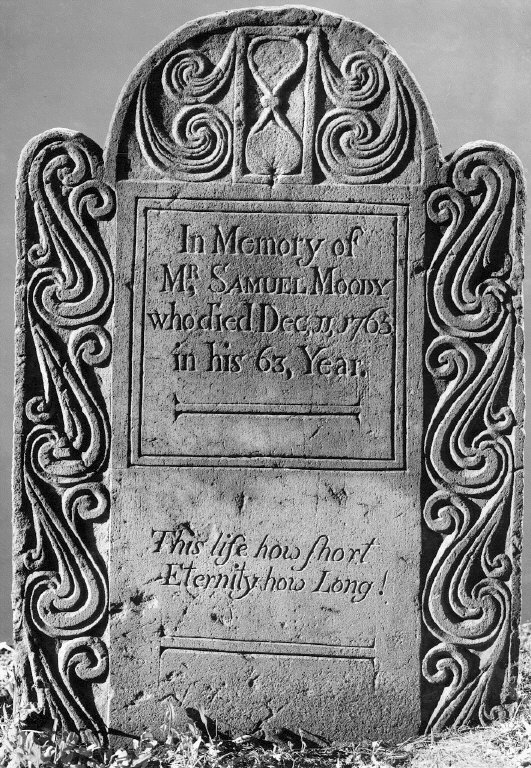 In Memory of
Mr. SAMUEL MOODY
who died Dec, 11, 1763
in his 63, Year.
This life how ſhort
Eternity how Long!